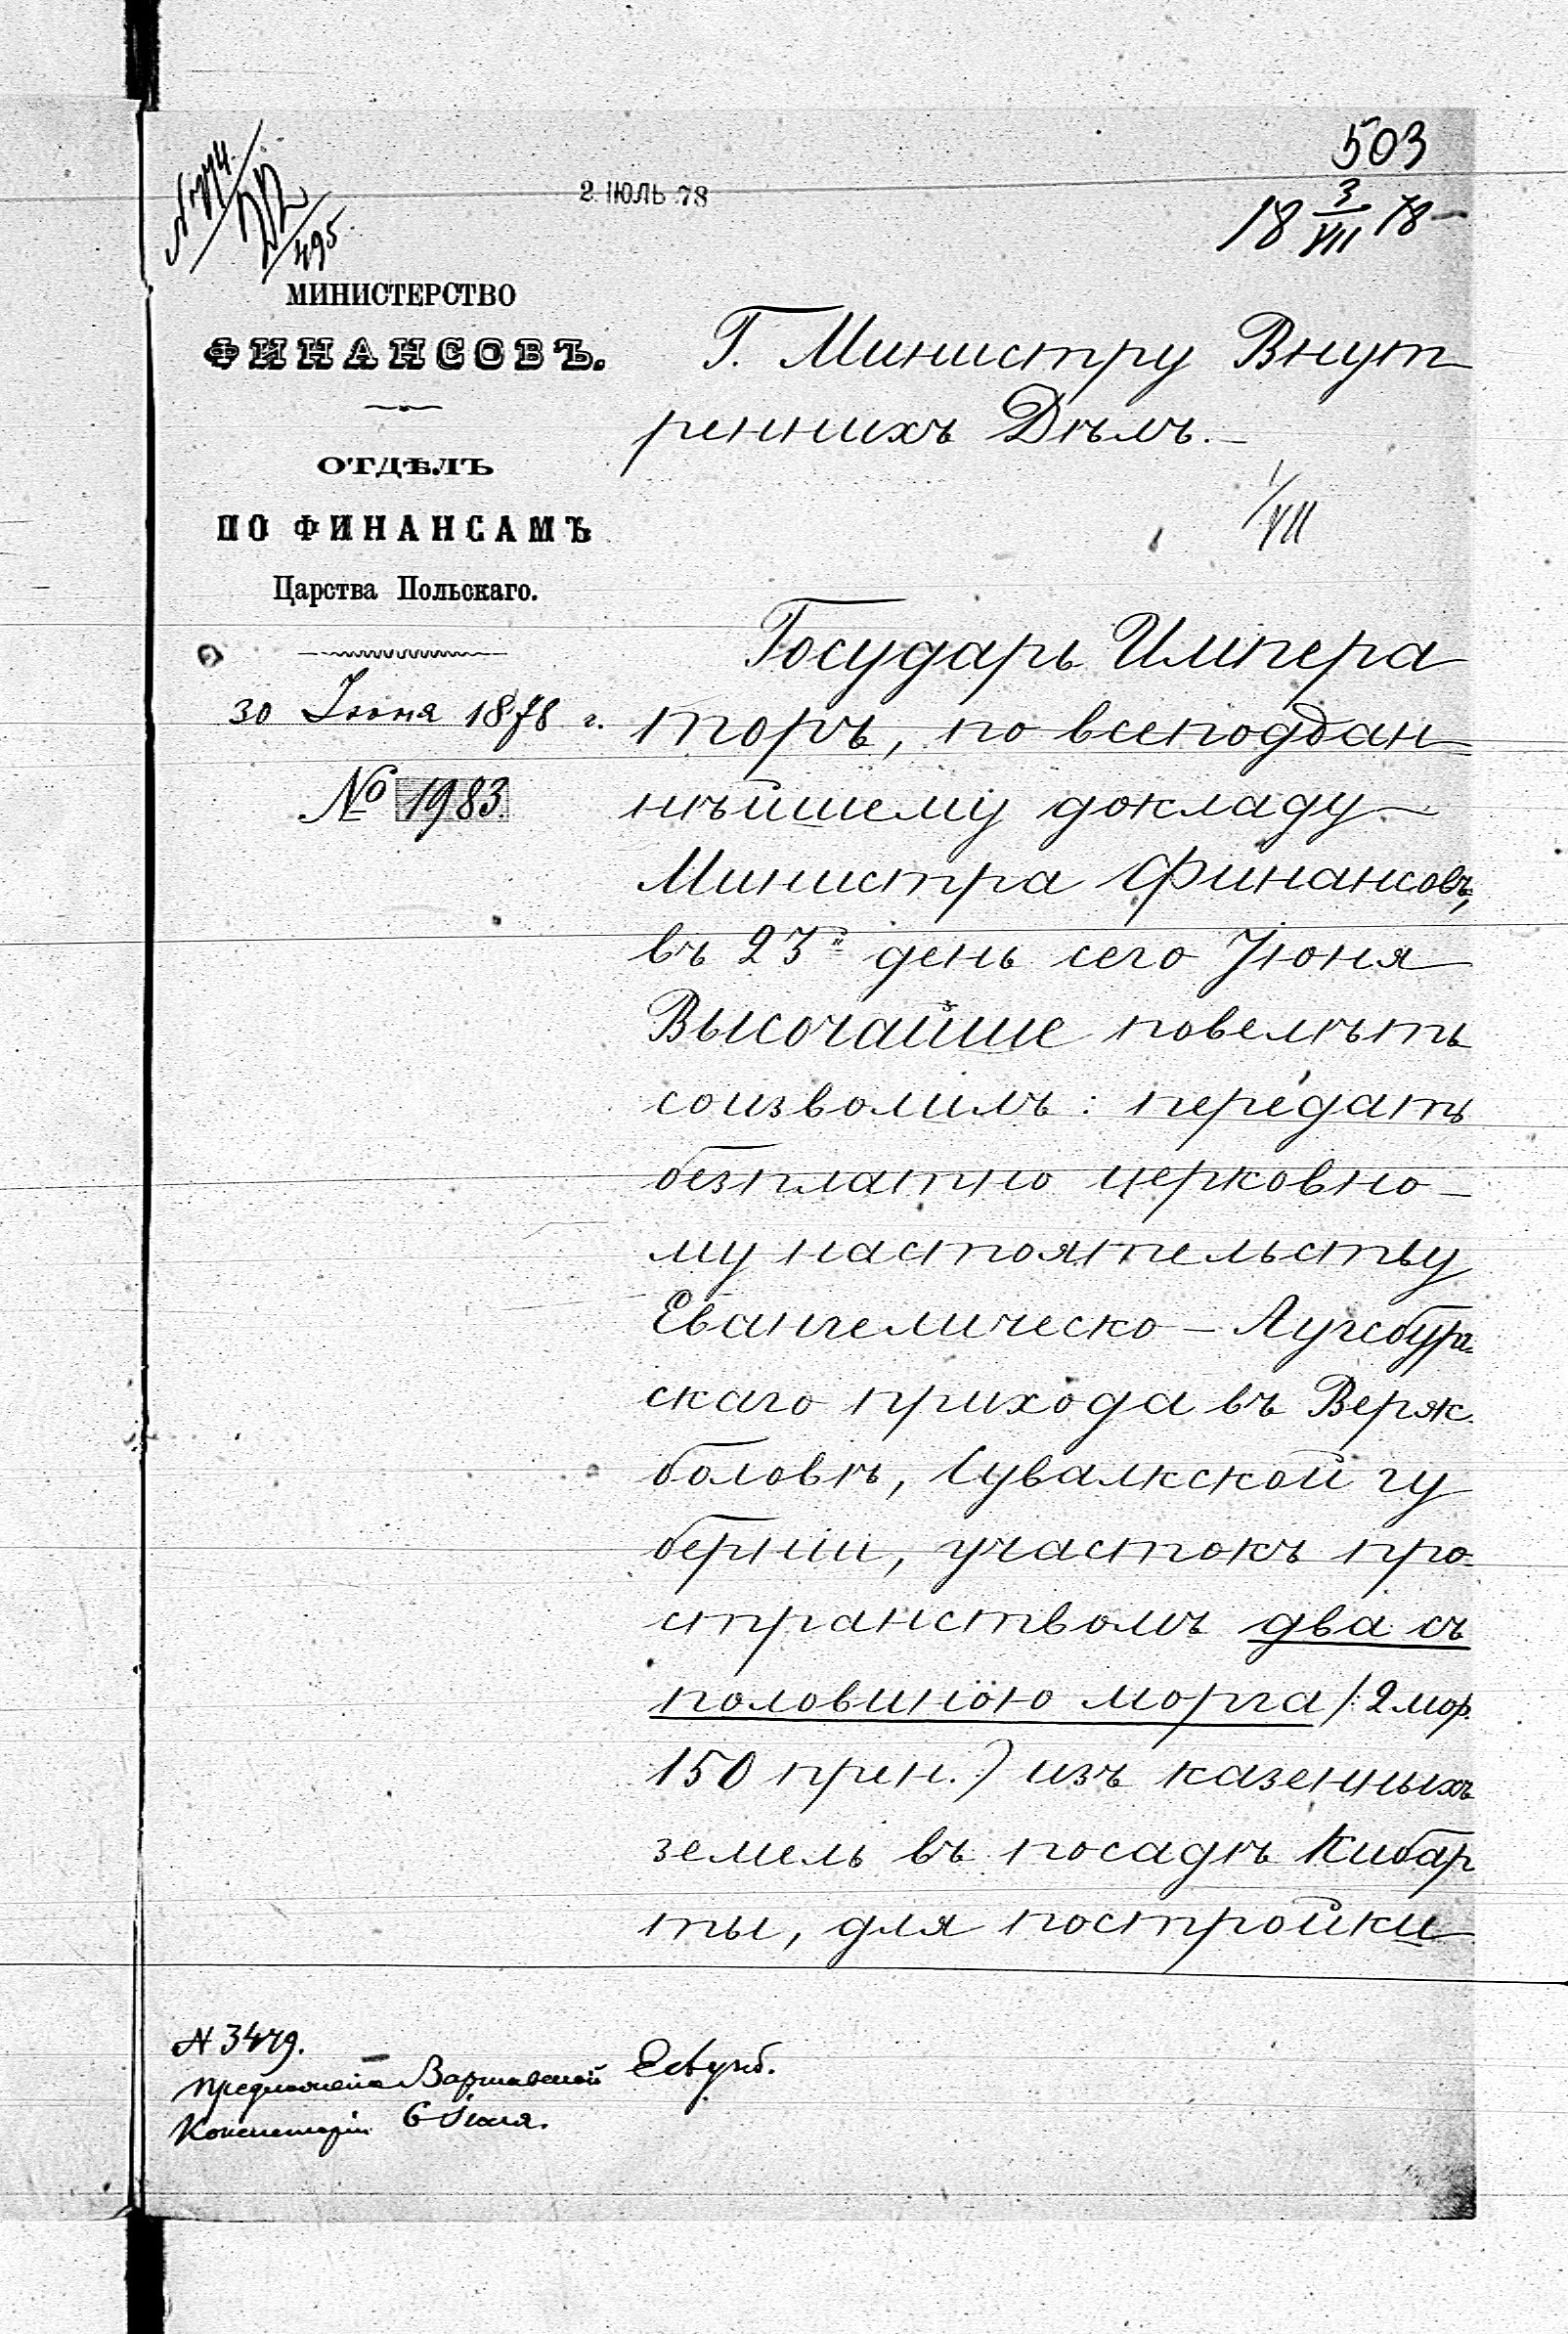 503
2 ІЮЛЬ 78
18 3/VII 78
495.
МИНИСТЕРСТВО
ФИНАНСОВЪ.
ОТДѢЛЪ
ПО ФИНАНСАМЪ
Царства Польскаго.
30 Іюня 1878 г.
№ 1983.
Г. Министру Внут
реннихъ Дѣлъ.
1/VII
Государь Импера
торъ, по всеподдан=
нѣйшему докладу
Министра Финансовъ,
въ 23й день сего Іюня
Высочайше повелѣть
соизволилъ: передать
безплатно церковно-
му настоятельству
Евангелическо-Аугсбург=
скаго прихода въ Верж=
боловѣ, Сувалкской гу
берніи, участокъ про=
странствомъ два съ
половиною морга /: 2 мор.
150 прен.) изъ казенныхъ
земель въ посадѣ Кибар
ты, для постройки
N 3479.
Предложено Варшавской
Консисторіи 6 Іюля.